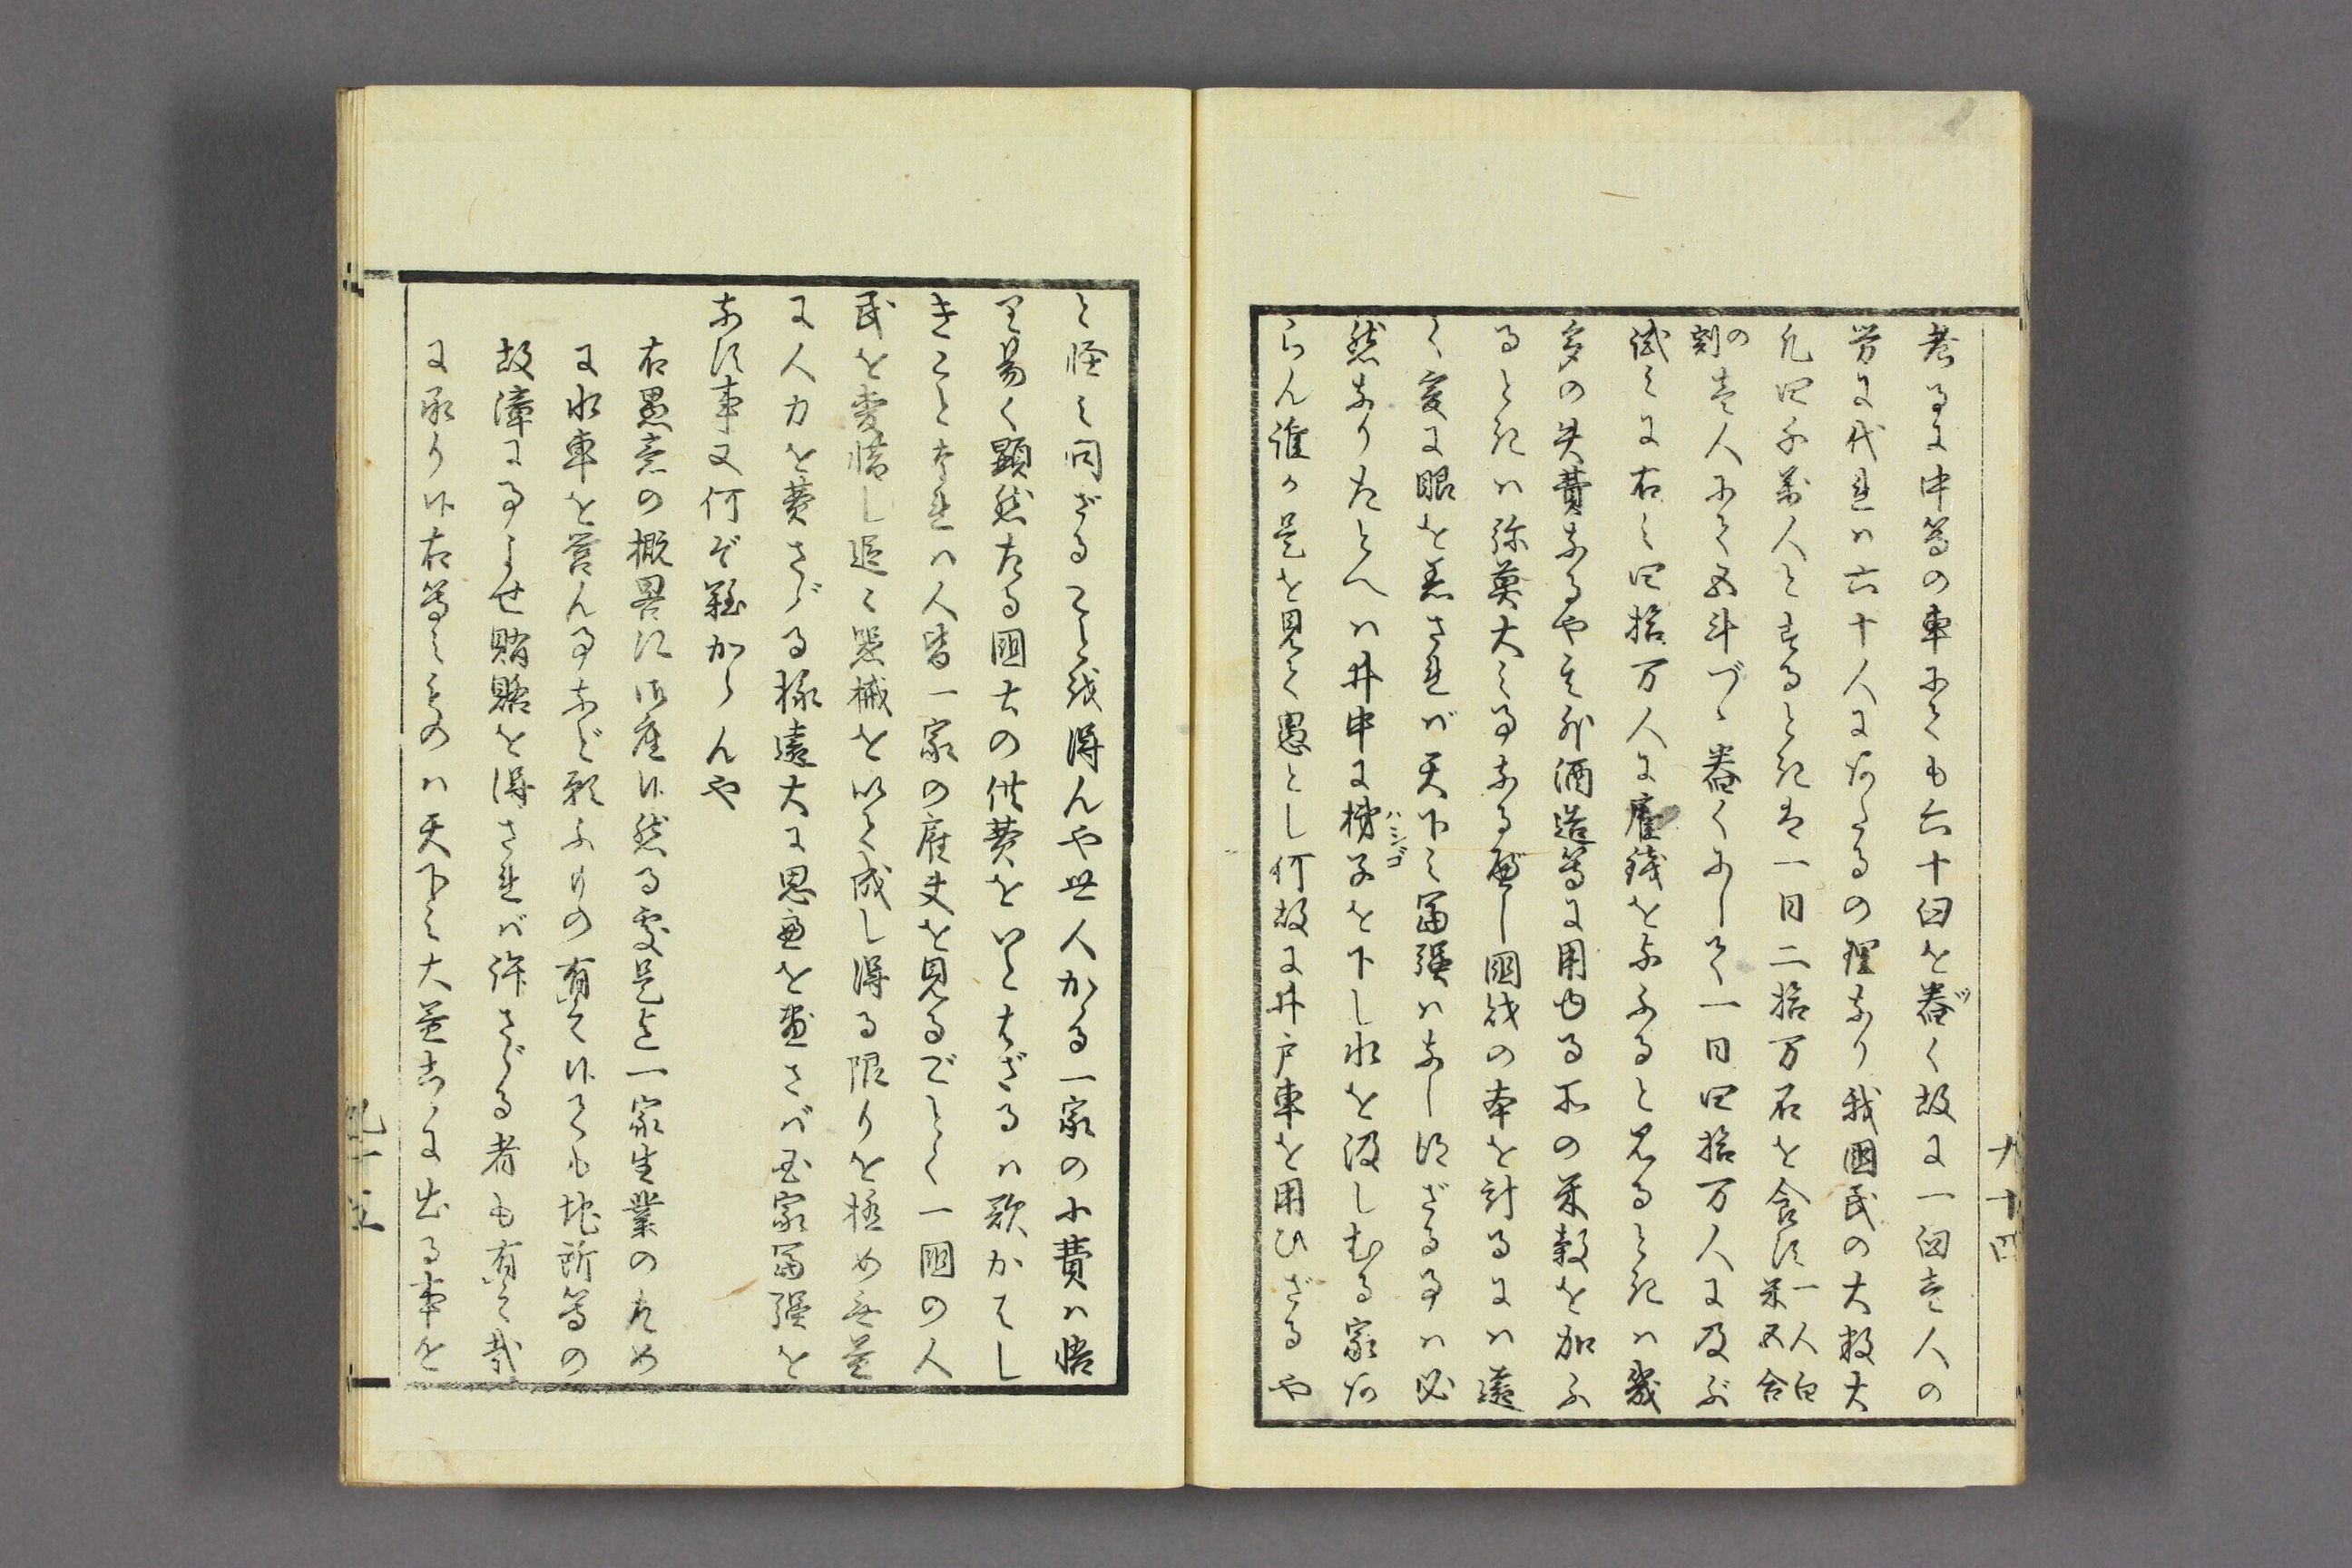 考るに中等の車にても六十臼を舂く故に一臼壱人の
労に代れハ六十人に何たるの理なり我國民の大数大
凡四千萬人とするときは一日二拾万石を食す一人白米五合
の刻壱人にて五斗づゝ舂くにして一日四拾万人に及ぶ
試ミに右之四拾万人に雇銭を与ふると見るときハ幾
多の失費なるや其外酒造等に用ゆる所の米穀を加ふ
るときハ弥莫大之事なる歴し國財の本を計るにハ遠
く爰に眼を着されバ天下之冨強ハなし得ざる事ハ必
然なりたとへハ井中に梯子を下し水を汲しむる家何
らん誰か是を見て愚とし何故に井戸車を用ひざるや
と怪ミ問ざることを得んや世人かゝる一家の小費ハ悟
り易く顕然たる國本の供費をいとはざるハ歎かはし
きことなれハ人皆一家の雇夫を見るごとく一國の人
民を愛惜し追々器械を以て成し得る限りを極め無益
に人力を費さゞる様遠大に思慮を盡さバ国家冨強を
なす事又何ぞ難からんや
右愚意の概畧に御座候然る處是迄一家生業のため
に水車を営ん事など願ふ有の有之候ても地所等の
故障に事よせ賄賂を得されバ許さゞる者も有之哉
に承り候右等之ものハ天下之大益こゝに出る事を
ハシゴ
九十四
九十五